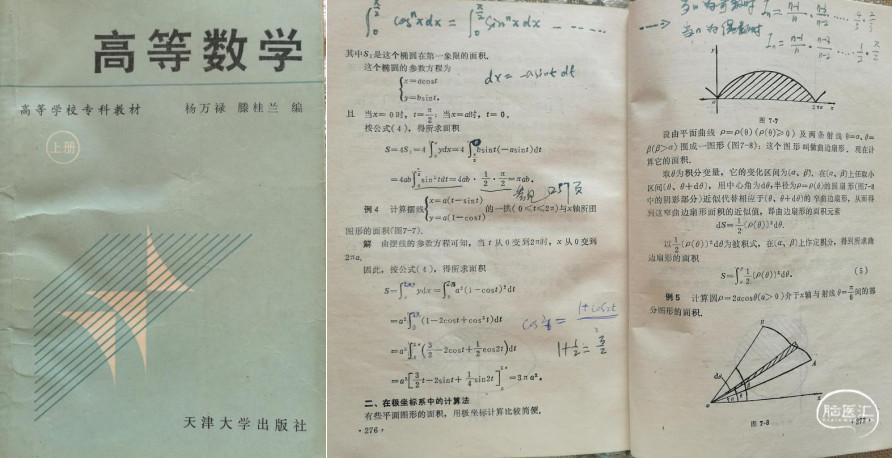 高等数学
高等学校专科教材 杨万禄 滕桂兰 编
上册
天津大学出版社
∫₀^(π/2) cosⁿxdx = ∫₀^(π/2) sinⁿxdx
其中S₁是这个椭圆在第一象限的面积.
这个椭圆的参数方程为
{x=acost
y=bsint. dx = -asint dt
且 当x=0时, t=π/2; 当x=a时, t=0.
按公式(4), 得所求面积
S=4S₁=4∫₀^a ydx=4∫_(π/2)^0 bsint(-asint)dt
=4ab∫₀^(π/2) sin²tdt=4ab·1/2·π/2=πab.
257页
例4 计算摆线{x=a(t-sint) y=a(1-cost)的一拱(0≤t≤2π)与x轴所围
图形的面积(图7-7).
解 由摆线的参数方程可知, 当t从0变到2π时, x从0变到
2πa.
因此, 按公式(4), 得所求面积
S=∫₀^(2πa) ydx=∫₀^(2π) a²(1-cost)²dt
=a²∫₀^(2π)(1-2cost+cos²t)dt
=a²∫₀^(2π)(3/2-2cost+1/2cos2t)dt
1+1/2=3/2
=a²[3/2t-2sint+1/4sin2t]₀^(2π)=3πa².
二、在极坐标系中的计算法
有些平面图形的面积, 用极坐标计算比较简便.
·276·
当n为奇数时 Iₙ=
当n为偶数时 Iₙ=
图 7-7
设由平面曲线 ρ=ρ(θ)(ρ(θ)≥0)及两条射线θ=α、θ=
β(β>α)围成一图形(图7-8); 这个图形叫做曲边扇形. 现在计
算它的面积.
取θ为积分变量, 它的变化区间为[α, β]. 在[α, β]上任取小
区间[θ, θ+dθ], 用中心角为dθ,半径为ρ=ρ(θ)的圆扇形(图7-8
中的阴影部分)近似代替相应于[θ, θ+dθ]的窄曲边扇形, 从而得
到这窄曲边扇形面积的近似值, 即曲边扇形的面积元素
dS=1/2[ρ(θ)]²dθ.
以1/2[ρ(θ)]²dθ为被积式, 在[α, β]上作定积分, 得到所求曲
边扇形的面积
S=∫_α^β 1/2[ρ(θ)]²dθ. (5)
例5 计算圆ρ=2acosθ(a>0)介于x轴与射线θ=π/6间的部
分图形的面积.
图 7-8
·277·
脑医汇